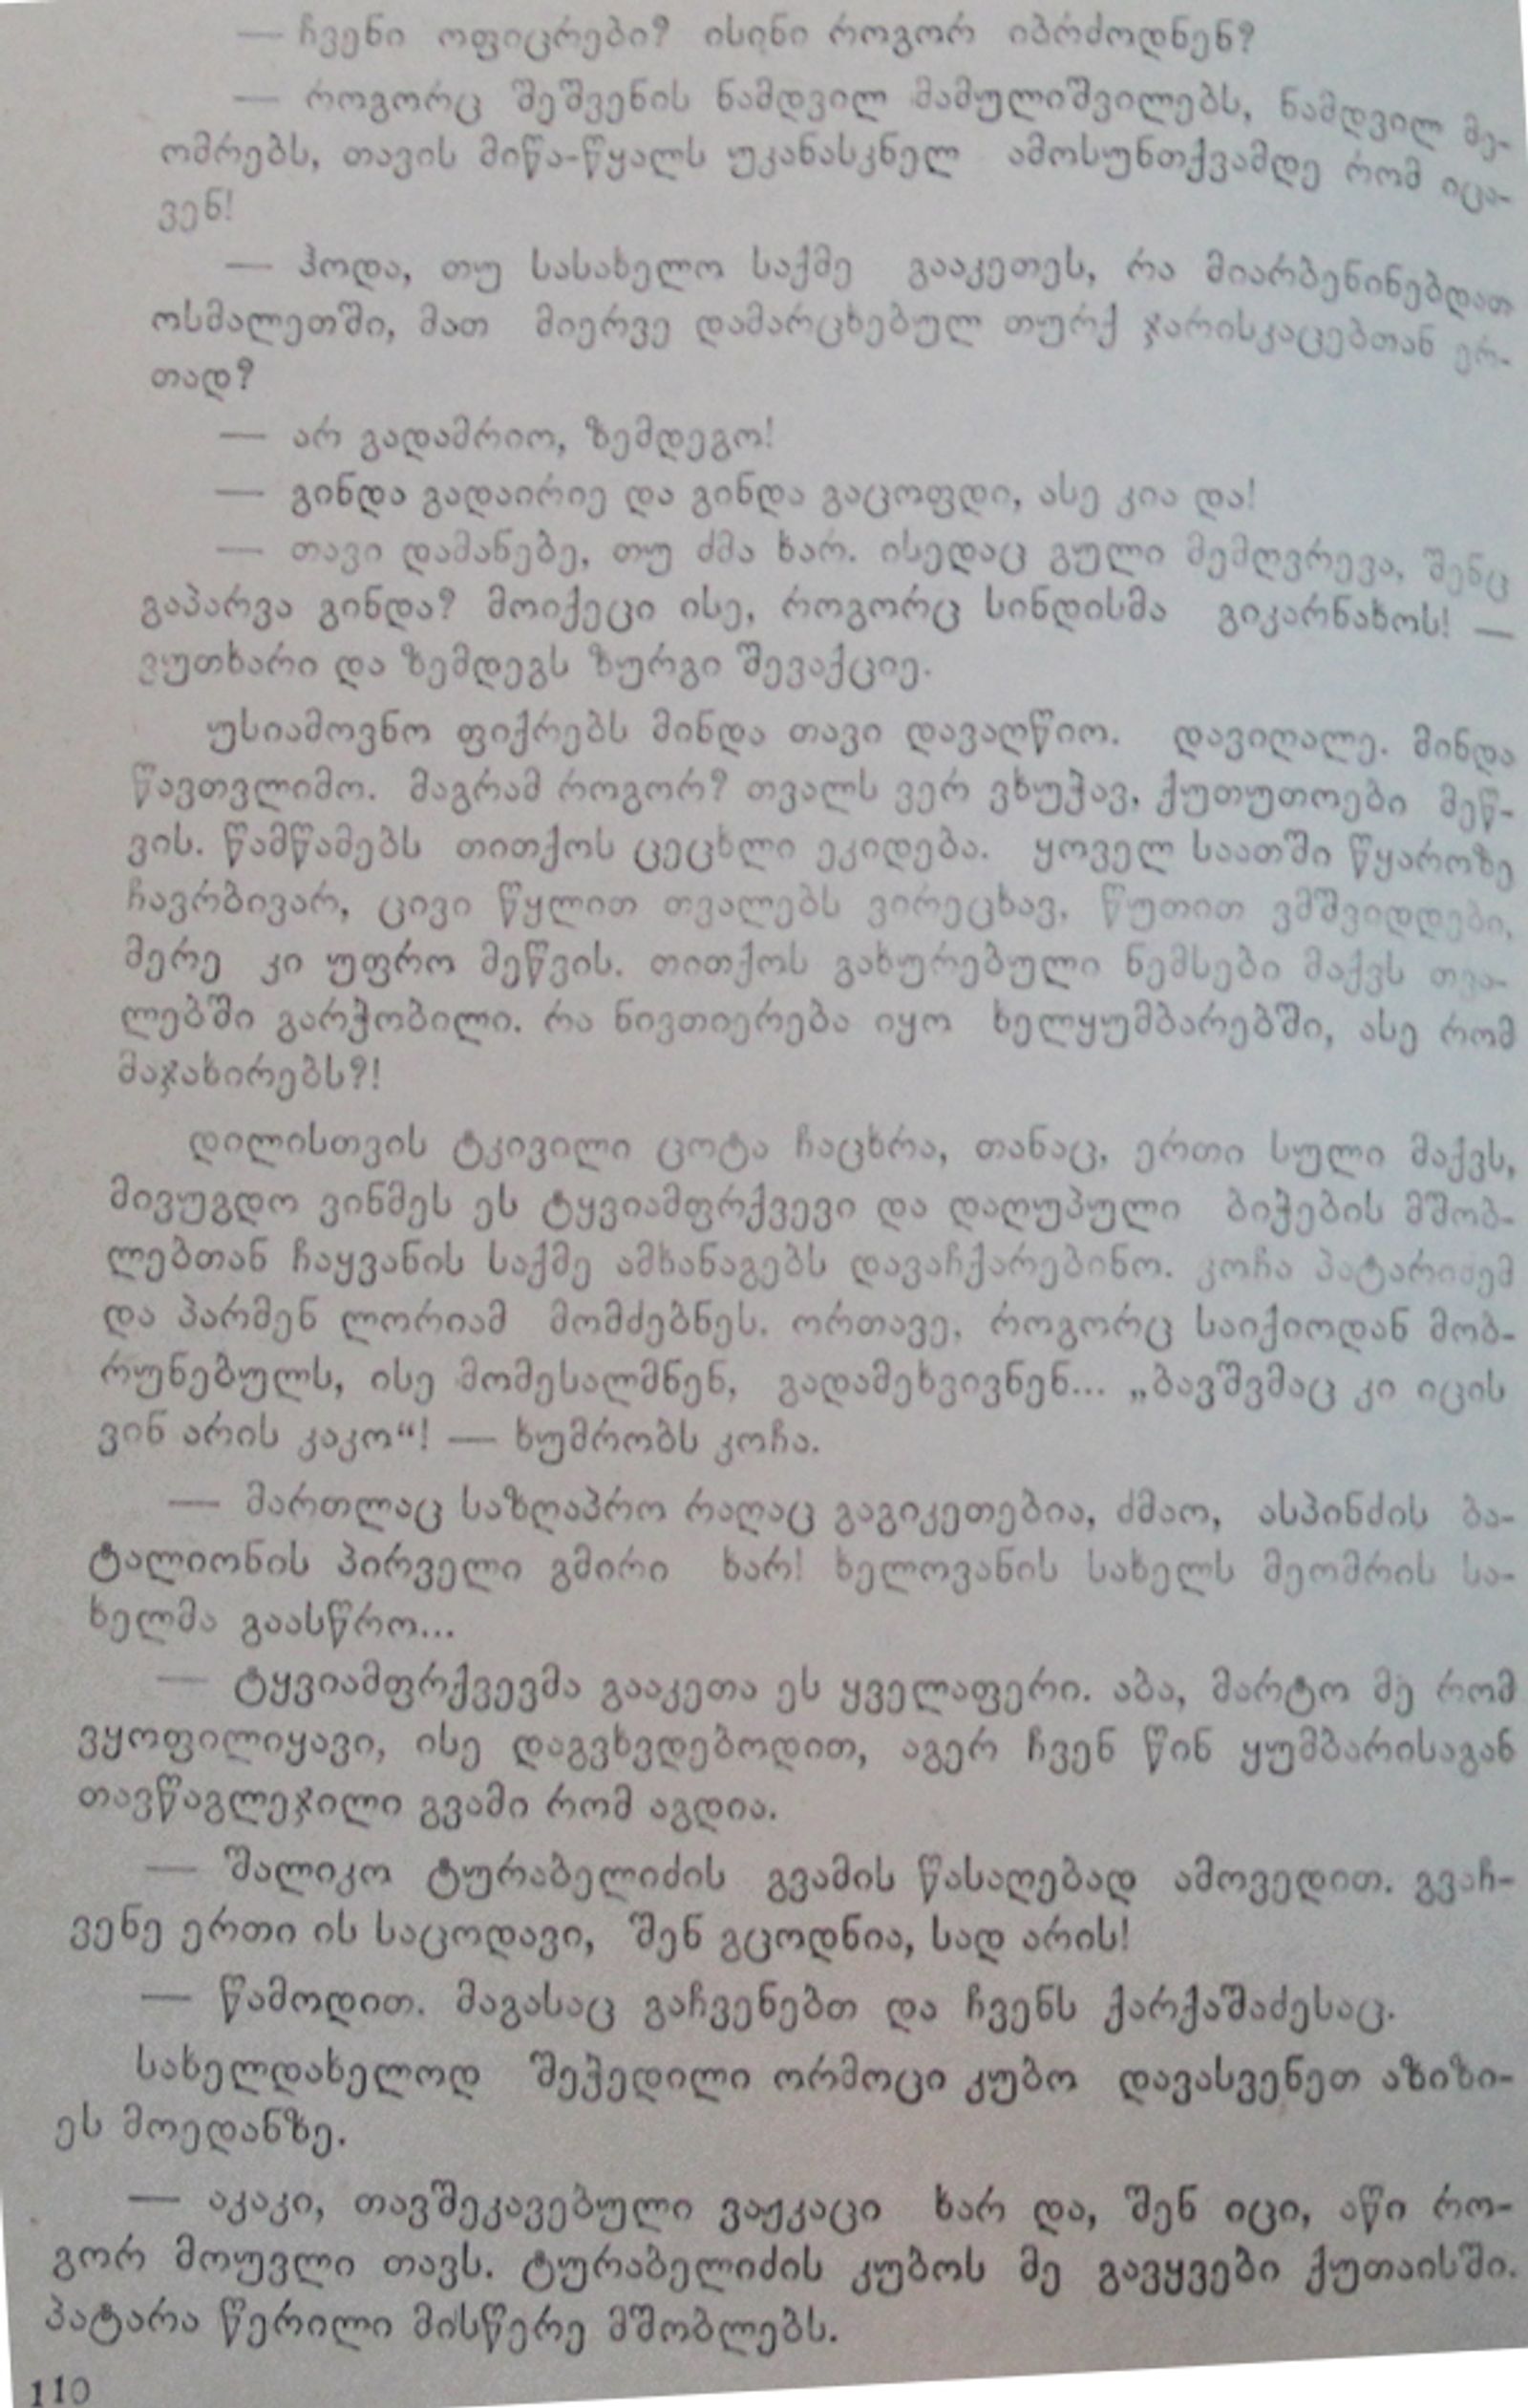 — ჩვენი ოფიცრები? ისინი როგორ იბრძოდნენ?
— როგორც შეშვენის ნამდვილ მამულიშვილებს, ნამდვილ მე-
ომრებს, თავის მიწა-წყალს უკანასკნელ ამოსუნთქვამდე რომ იცა-
ვენ!
— ჰოდა, თუ სასახელო საქმე გააკეთეს, რა მიარბენინებდათ
ოსმალეთში, მათ მიერვე დამარცხებულ თურქ ჯარისკაცებთან ერ-
თად?
— არ გადამრიო, ზემდეგო!
— გინდა გადაირიე და გინდა გაცოფდი, ასე კია და!
— თავი დამანებე, თუ ძმა ხარ. ისედაც გული მემღვრევა, შენც
გაპარვა გინდა? მოიქეცი ისე, როგორც სინდისმა გიკარნახოს! —
ვუთხარი და ზემდეგს ზურგი შევაქციე.
უსიამოვნო ფიქრებს მინდა თავი დავაღწიო. დავიღალე. მინდა
წავთვლიმო. მაგრამ როგორ? თვალს ვერ ვხუჭავ, ქუთუთოები მეწ-
ვის. წამწამებს თითქოს ცეცხლი ეკიდება. ყოველ საათში წყაროზე
ჩავრბივარ, ცივი წყლით თვალებს ვირეცხავ, წუთით ვმშვიდდები,
მერე კი უფრო მეწვის. თითქოს გახურებული ნემსები მაქვს თვა-
ლებში გარჭობილი. რა ნივთიერება იყო ხელყუმბარებში, ასე რომ
მაჯახირებს?!
დილისთვის ტკივილი ცოტა ჩაცხრა, თანაც, ერთი სული მაქვს,
მივუგდო ვინმეს ეს ტყვიამფრქვევი და დაღუპული ბიჭების მშობ-
ლებთან ჩაყვანის საქმე ამხანაგებს დავაჩქარებინო. კოჩა პატარიძემ
და პარმენ ლორიამ მომძებნეს. ორთავე, როგორც საიქიოდან მობ-
რუნებულს, ისე მომესალმნენ, გადამეხვივნენ... „ბავშვმაც კი იცის
ვინ არის კაკო“! — ხუმრობს კოჩა.
— მართლაც საზღაპრო რაღაც გაგიკეთებია, ძმაო, ასპინძის ბა-
ტალიონის პირველი გმირი ხარ! ხელოვანის სახელს მეომრის სა-
ხელმა გაასწრო...
— ტყვიამფრქვევმა გააკეთა ეს ყველაფერი. აბა, მარტო მე რომ
ვყოფილიყავი, ისე დაგვხვდებოდით, აგერ ჩვენ წინ ყუმბარისაგან
თავწაგლეჯილი გვამი რომ აგდია.
— შალიკო ტურაბელიძის გვამის წასაღებად ამოვედით. გვაჩ-
ვენე ერთი ის საცოდავი, შენ გცოდნია, სად არის!
— წამოდით. მაგასაც გაჩვენებთ და ჩვენს ქარქაშაძესაც.
სახელდახელოდ შეჭედილი ორმოცი კუბო დავასვენეთ აზიზი-
ეს მოედანზე.
— აკაკი, თავშეკავებული ვაჟკაცი ხარ და, შენ იცი, აწი რო-
გორ მოუვლი თავს. ტურაბელიძის კუბოს მე გავყვები ქუთაისში.
პატარა წერილი მისწერე მშობლებს.
110